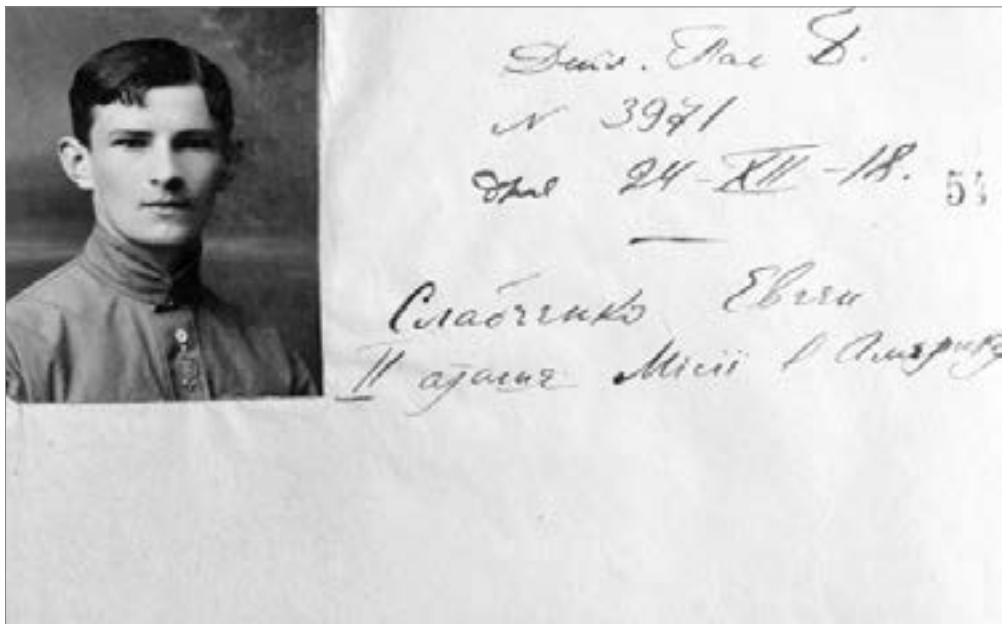 Дипл. Пас Б.
№ 3971
дня 24-XII-18.
54
Слабченко Евген
II аташе Місії в Америку